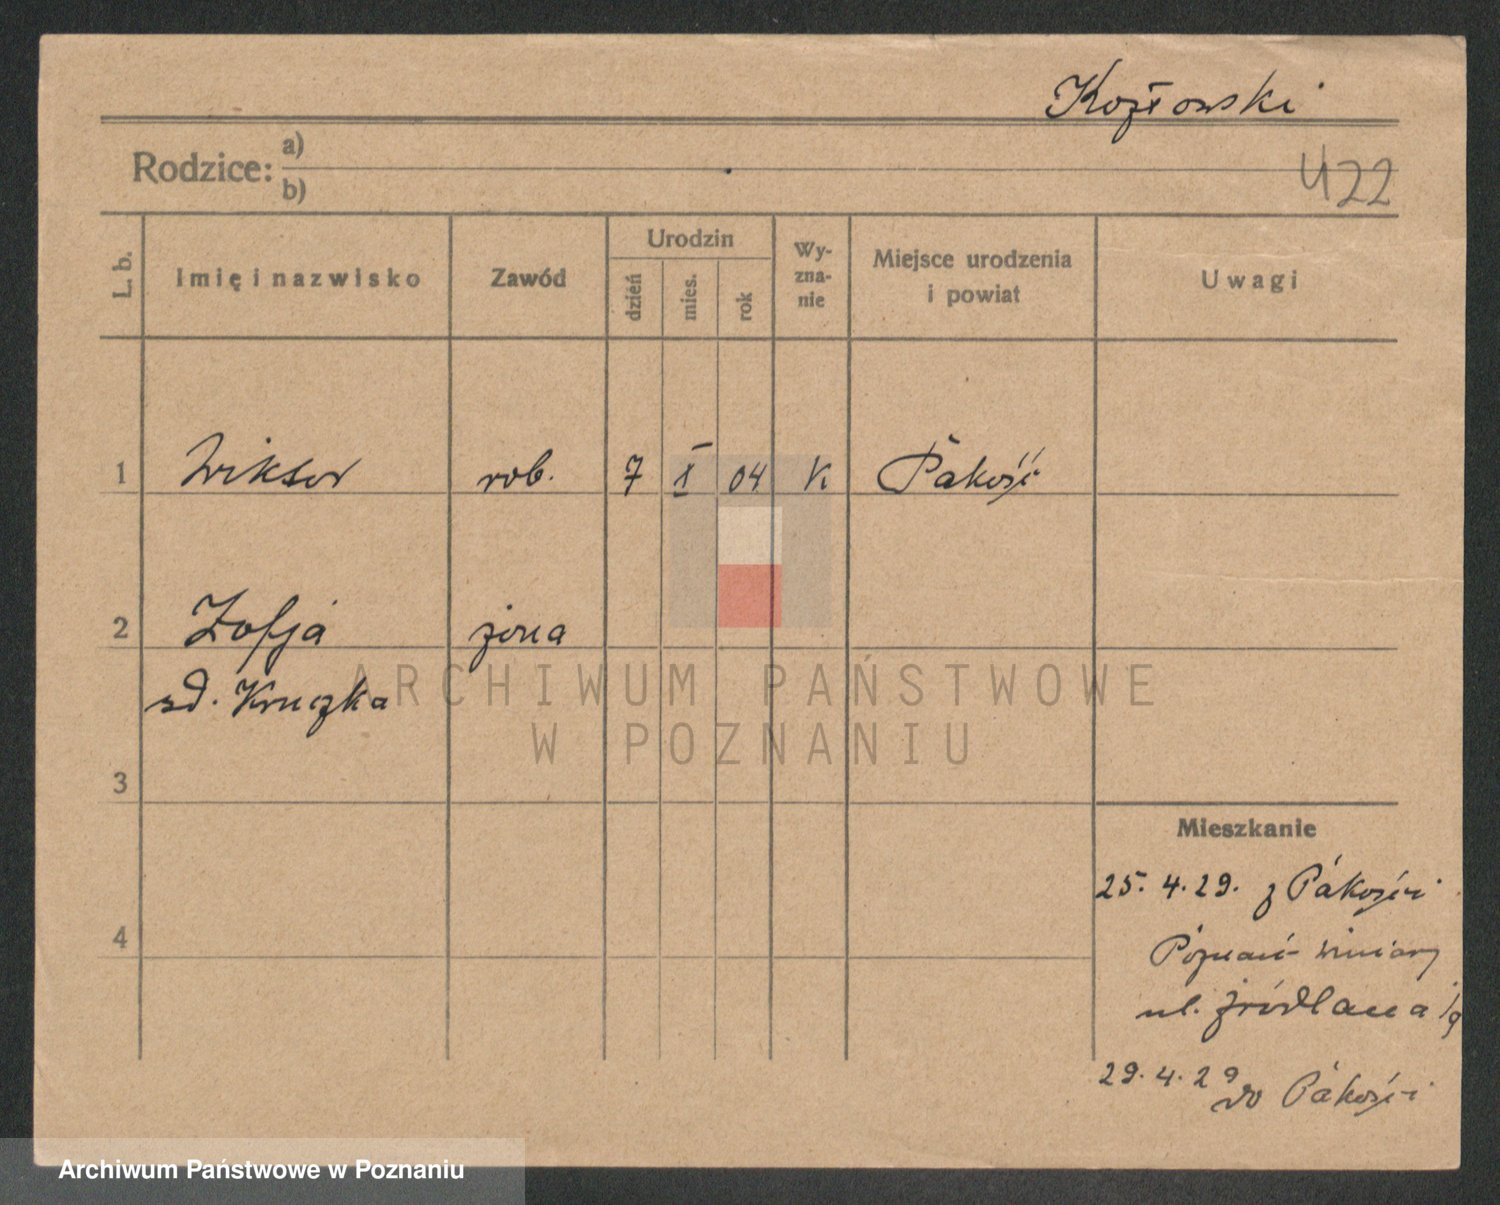 Kozłowski
Rodzice: a)
b)
422
L. b.
Imię i nazwisko
Zawód
Urodzin
dzień
mies.
rok
Wy-
zna-
nie
Miejsce urodzenia
i powiat
Uwagi
1 Wiktor rob. 7 X 04 K Pakość
2 Zofja żona
zd. Kruczka
ARCHIWUM PAŃSTWOWE
W POZNANIU
3
Mieszkanie
25. 4. 29. z Pakości
4
Poznań Winiary
ul. Źródlana
29. 4. 29 do Pakości
Archiwum Państwowe w Poznaniu